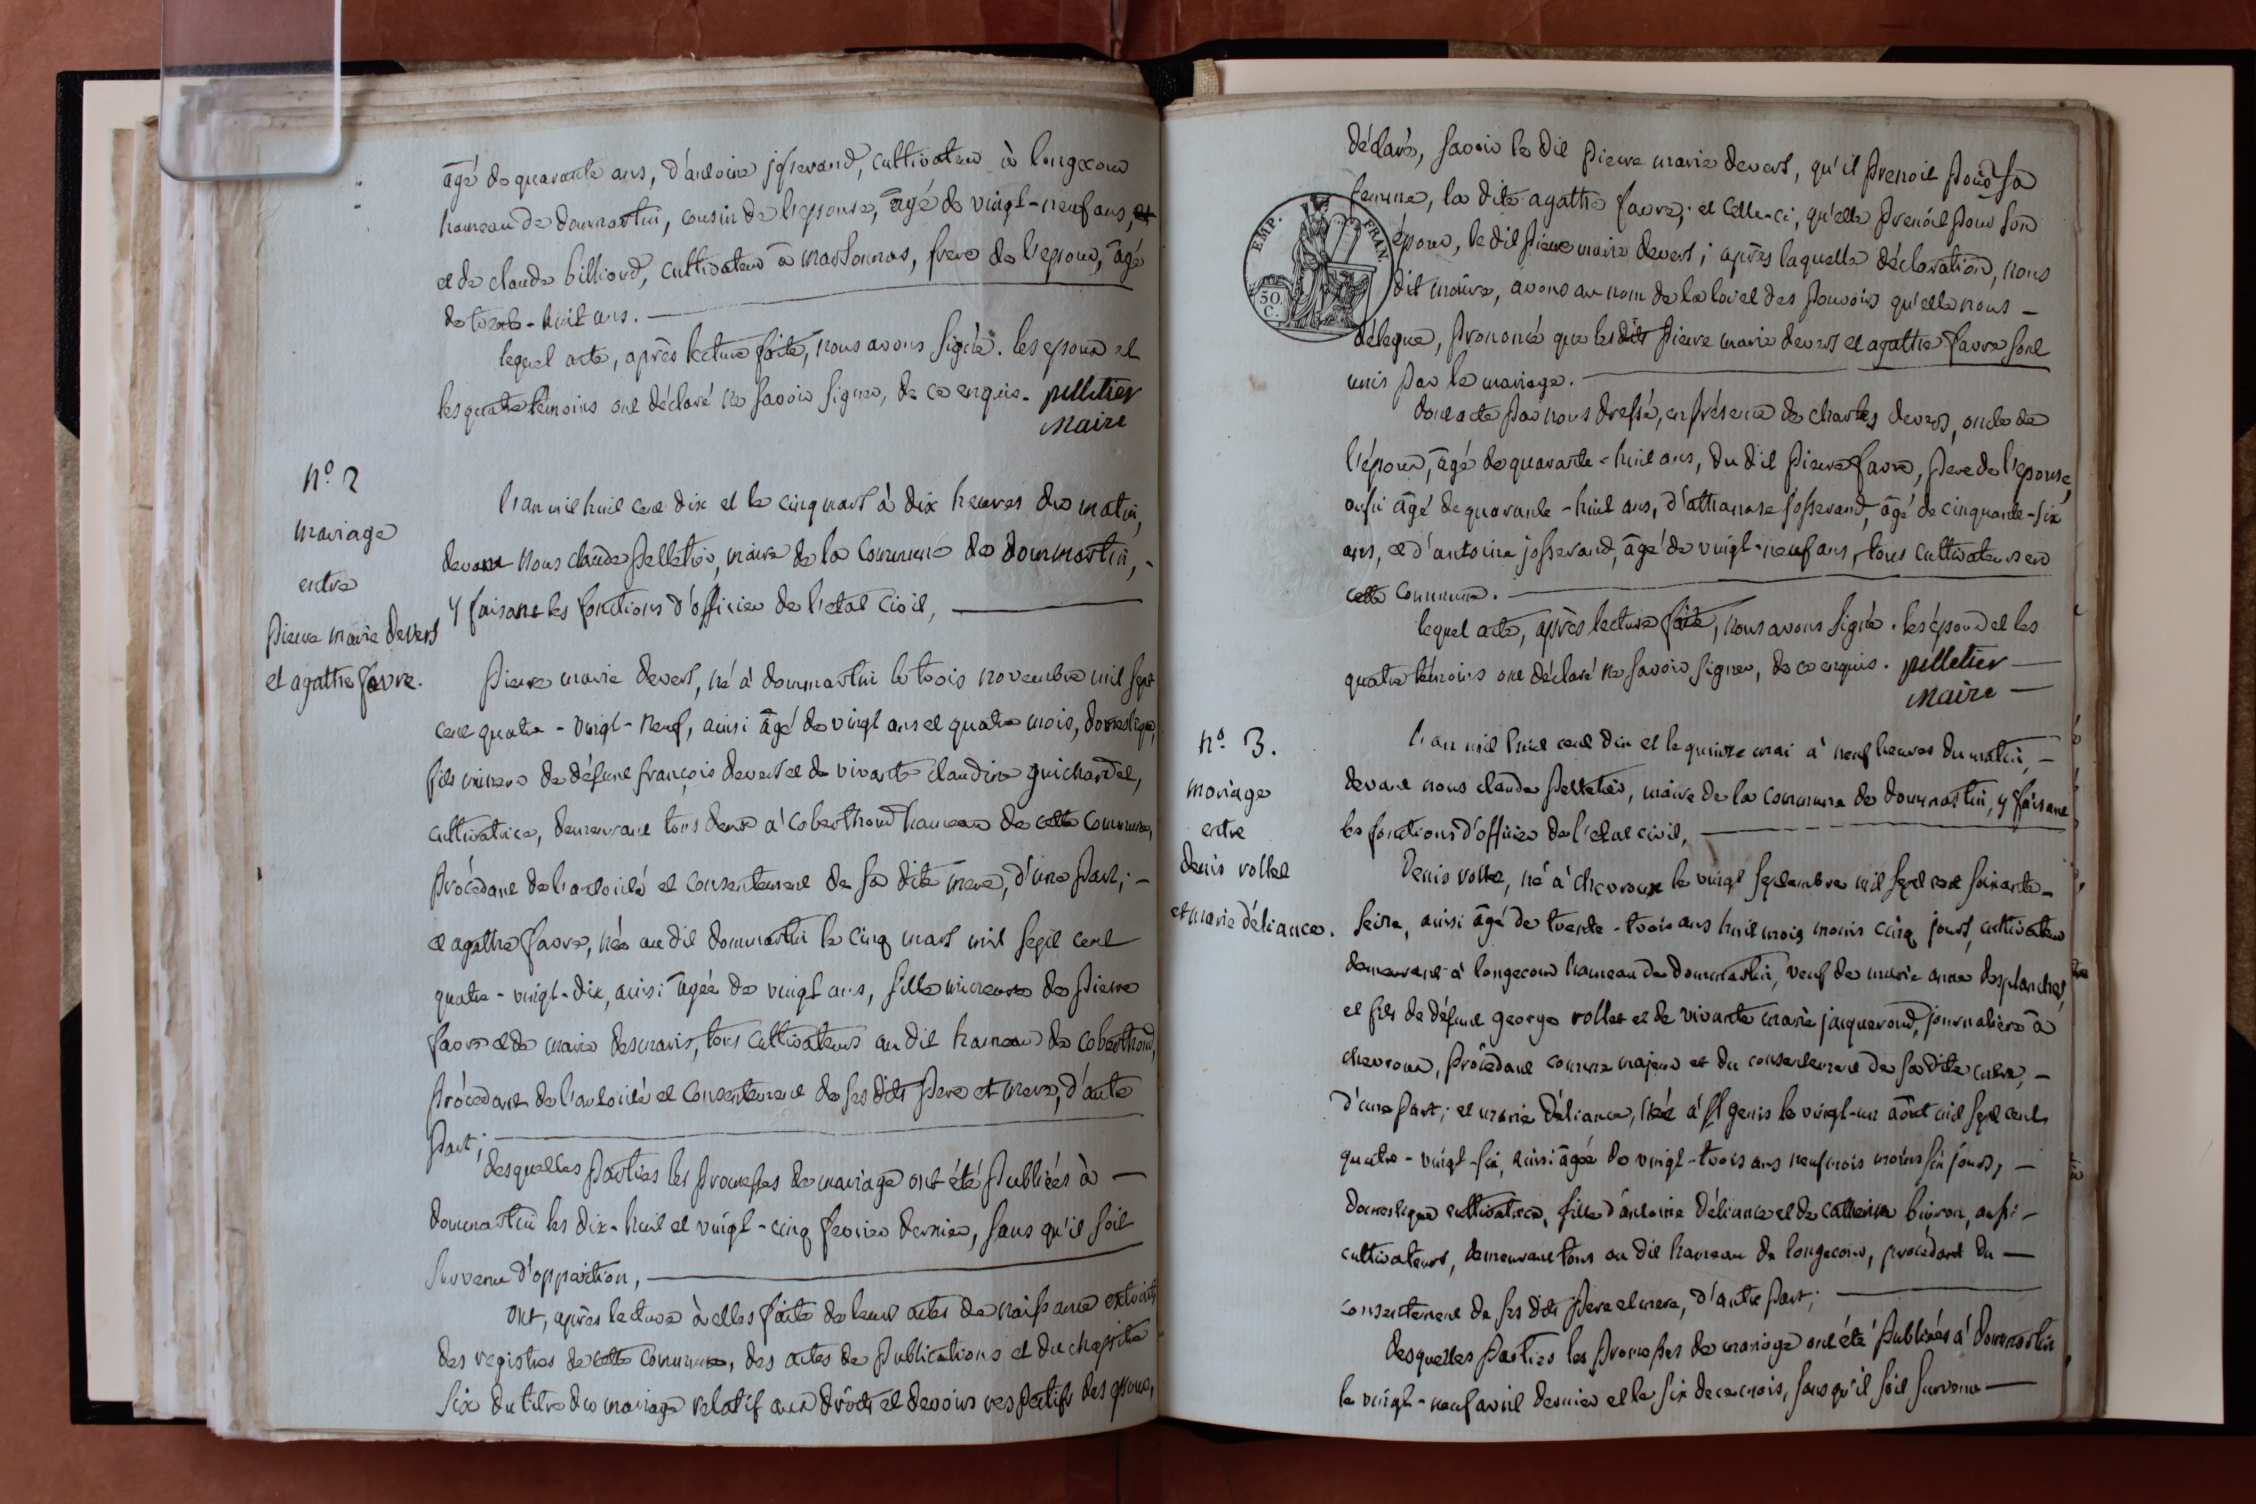 âgé de quarante ans, d'antoine josserand, cultivateur à longecour
hameau de dommartin, cousin de l'epouse, âgé de vingt-neuf ans,
et de claude billioud, cultivateur à marsonnas, frere de l'epoux, âgé
de trente-huit ans.
lequel acte, après lecture faite, nous avons signé. les epoux et
les quatre témoins ont déclaré ne savoir signer, de ce enquis. pelletier
maire
n.º 2
mariage
entre
pierre marie devert
et agathe favre.
l'an mil huit cent dix et le cinq mars à dix heures du matin,
devant nous claude pelletier, maire de la commune de dommartin,
y faisant les fonctions d'officier de l'etat civil,
pierre marie devert, né à dommartin le trois novembre mil sept
cent quatre-vingt-neuf, ainsi âgé de vingt ans et quatre mois, domestique,
fils mineur de défunt françois devert et de vivante claudine guichardet,
cultivatrice, demeurant tous deux à coberthoud hameau de cette commune,
procédant de l'autorité et consentement de sa dite mere, d'une part;
et agathe favre, née au dit dommartin le cinq mars mil sept cent
quatre-vingt-dix, ainsi âgée de vingt ans, fille mineure de pierre
favre et de marie desmaris, tous cultivateurs au dit hameau de coberthoud,
procédant de l'autorité et consentement de ses dits pere et mere, d'autre
part;
desquelles parties les promesses de mariage ont été publiées à
dommartin les dix-huit et vingt-cinq fevrier dernier, sans qu'il soit
survenu d'opposition,
ont, après lecture à elles faite de leurs actes de naissance extraits
des registres de cette commune, des actes de publications et du chapitre
six du titre du mariage relatif aux droits et devoirs respectifs des epoux,
déclaré, savoir le dit pierre marie devert, qu'il prenoit pour sa
femme, la dite agathe favre; et celle-ci, qu'elle prenoit pour son
époux, le dit pierre marie devert; après laquelle déclaration, nous
dit maire, avons au nom de la loi et des pouvoirs qu'elle nous
délegue, prononcé que les dits pierre marie devert et agathe favre sont
unis par le mariage.
EMP. FRAN.
50.
C.
dont acte par nous dressé, en présence de charles devert, oncle de
l'époux, âgé de quarante-huit ans, du dit pierre favre, pere de l'epouse,
aussi âgé de quarante-huit ans, d'athanase josserand, âgé de cinquante-six
ans, et d'antoine josserand, âgé de vingt-neuf ans, tous cultivateurs en
cette commune.
lequel acte, après lecture faite, nous avons signé. les époux et les
quatre témoins ont déclaré ne savoir signer, de ce enquis. pelletier
maire
n.º 3.
mariage
entre
denis rollet
et marie déliance.
l'an mil huit cent dix et le quinze mai à neuf heures du matin,
devant nous claude pelletier, maire de la commune de dommartin, y faisant
les fonctions d'officier de l'etat civil,
Denis rollet, né à chevroux le vingt septembre mil sept cent soixante-
seize, ainsi âgé de trente-trois ans huit mois moins cinq jours, cultivateur
demeurant à longecour hameau de dommartin, veuf de marie anne desplanches,
et fils de défunt george rollet et de vivante marie jacqueroud, journaliere à
chevroux, procédant comme majeur et du consentement de sa dite mere,
d'une part; et marie déliance, née à st genis le vingt-un août mil sept cent
quatre-vingt-six, ainsi âgée de vingt-trois ans neuf mois moins six jours,
domestique cultivatrice, fille d'antoine déliance et de catherine buiron, aussi
cultivateurs, demeurant tous au dit hameau de longecour, procédant du
consentement de ses dits pere et mere, d'autre part;
desquelles parties les promesses de mariage ont été publiées à dommartin
le vingt-neuf avril dernier et le six de ce mois, sans qu'il soit survenu